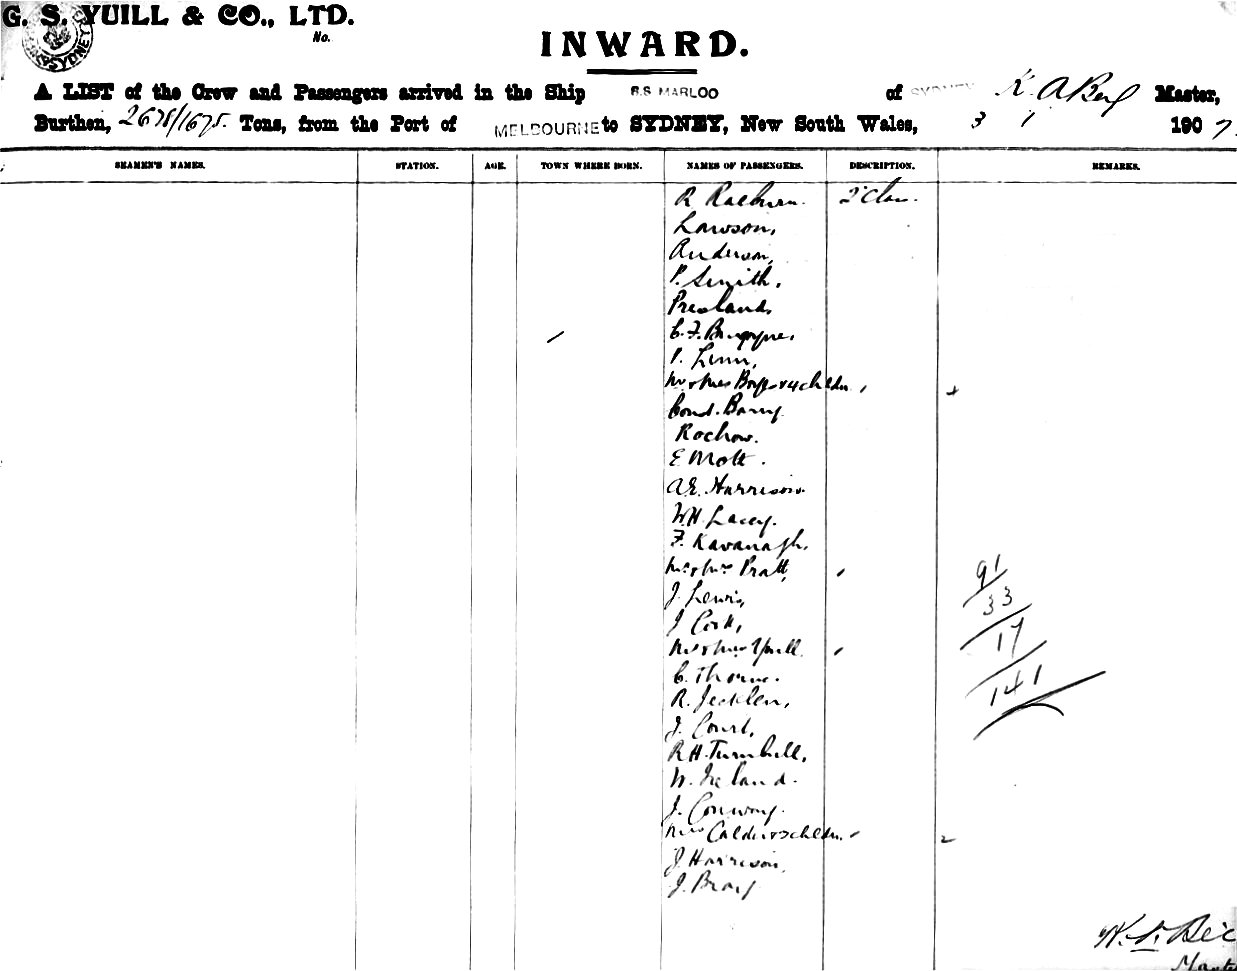 G. S. YUILL & CO., LTD.
No.
INWARD.
A LIST of the Crew and Passengers arrived in the Ship S.S MARLOO of SYDNEY Master,
Burthen, 2628/1675 Tons, from the Port of MELBOURNE to SYDNEY, New South Wales, 3 1 1907.
SEAMEN'S NAMES. STATION. AGE. TOWN WHERE BORN. NAMES OF PASSENGERS. DESCRIPTION. REMARKS.
R Raeburn. 2 Clas.
Lawson,
Anderson,
P. Smith.
Presland,
P. Linn,
Mr & Mrs
Barry.
Rochow.
E Mott.
A.E. Harrison.
W.H. Lacey.
F. Kavanagh.
Mr & Mrs Pratt,
J. Lewis,
91
33
J Cook,
17
Mr & Mrs Yuill.
C. Thorne.
141
R. Jecklen,
J. Court,
R H. Turnbull,
W. Ireland.
J. Conway.
Mrs Calder & childn. 2
J. Harrison,
J. Bray